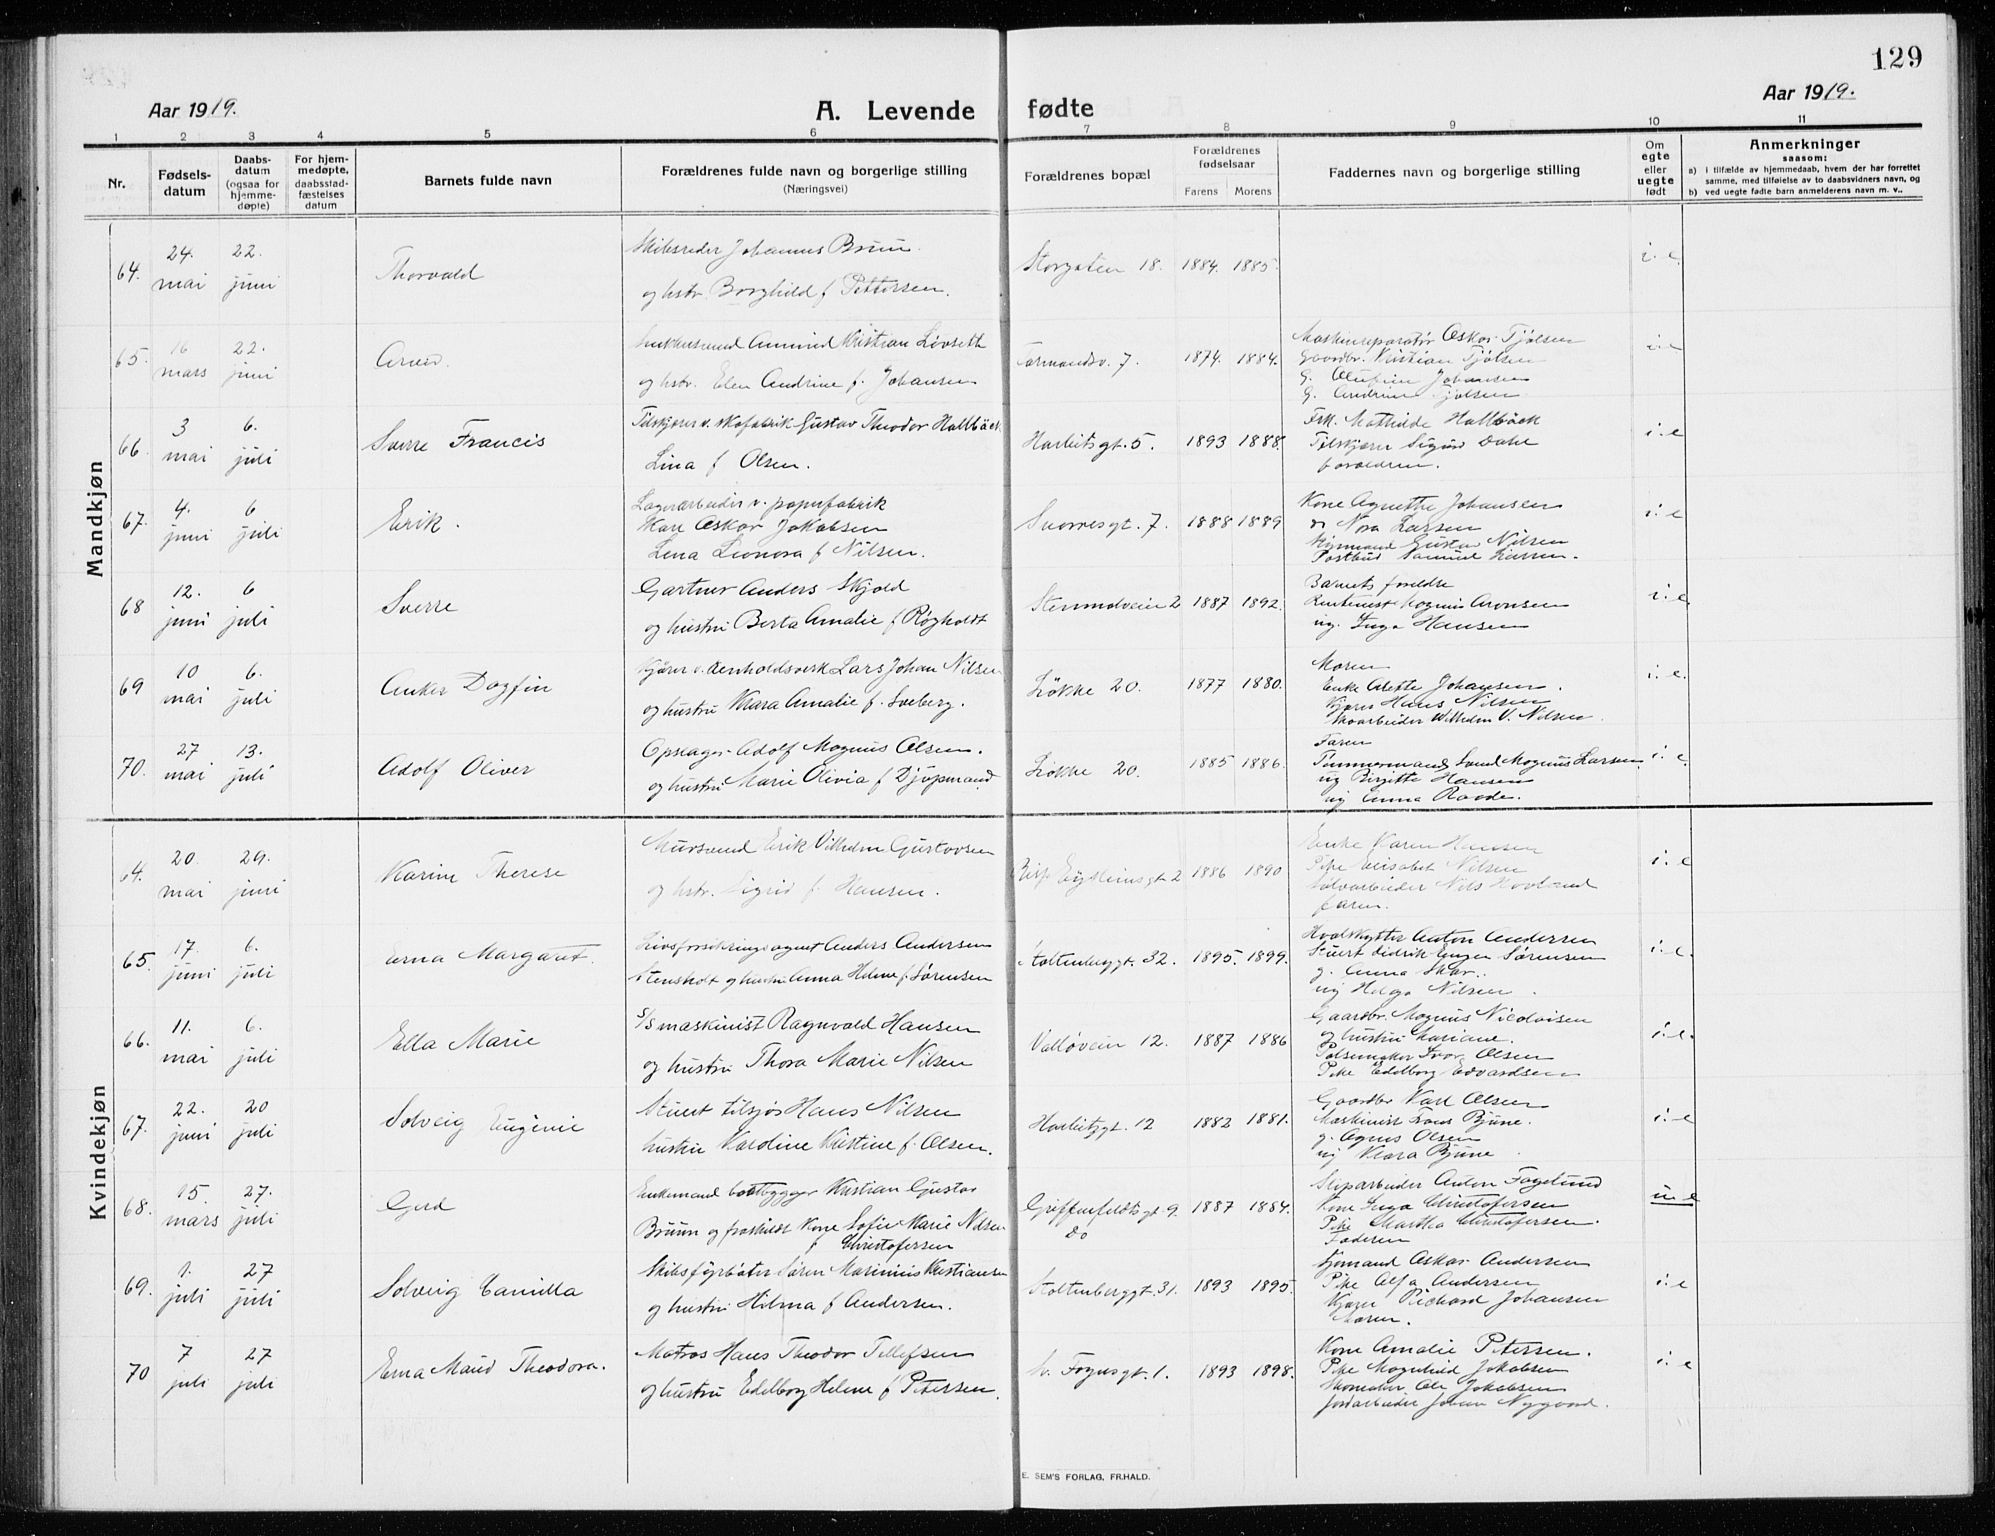 129
Aar 1919.
A. Levende fødte
Aar 1919.
1 2 3 4 5 6 7 8 9 10 11
Nr.
Fødsels-
datum
Daabs-
datum
(ogsaa for
hjemme-
døpte)
For hjem-
medøpte,
daabsstad-
fæstelses
datum
Barnets fulde navn
Forældrenes fulde navn og borgerlige stilling
(Næringsvei)
Forældrenes bopæl
Forældrenes
fødselsaar
Farens Morens
Faddernes navn og borgerlige stilling
Om
egte
eller
uegte
født
Anmerkninger
saasom:
a) i tilfælde av hjemmedaab, hvem der har forrettet
samme, med tilføielse av to daabsvidners navn, og
b) ved uegte fødte barn anmelderens navn m. v..
Mandkjøn
64. 24. mai 22. juni Thorvald
Skibsreder Johannes Bruun
og hstr. Borghild f Pettersen.
Storgaten 18. 1884. 1885. i. e.
65. 16 mars 22. juni
Kristian Løvseth
og hstr. Elen Andrine f. Johansen
Farmandsv. 7. 1874. 1884.
Maskinreparatør Oskar Tjølsen
Gaardbr. Kristian Tjølsen
G. Olufine Johansen
G. Andrine Tjølsen
i. e
66. 3 mai 6. juli Sverre Francis
Tilskjærer v. skofabrik Gustav Theodor Hallbäck
Lina f Olsen.
Harbitsgt. 5. 1893 1888.
Frk. Mathilde Hallbäck
Tilskjærer Sigurd Dahl
forældrene.
i. e
67. 4. juni 6 juli Erik.
Lagerarbeider v. papirfabrik
Karl Oskar Jakobsen
Lena Leonora f Nilsen.
Snorresgt. 7. 1888 1889
Kone Agnethe Johansen
Nora Larsen
Styrmand Gustav Nilsen
Postbud Samuel Larsen.
i. e
68 12. juni 6 juli Sverre
Gartner Anders Skjold
og hustru Berta Amalie f Røgholdt
2 1887 1892.
Barnets foreldre
Magnus Aronsen
ug. Inga Hansen
i. e
69 10 mai 6. juli Anker Dagfin
Kjører v. Renholdsverk Lars Johan Nilsen
og hustru Klara Amalie f. Sveberg.
Løkke 20. 1877 1880.
Moren
Enke Alette Johansen.
Kjører Hans Nilsen
Skoarbeider Wilhelm V. Nilsen.
i. e.
70. 27 mai 13. juli Adolf Oliver
Opseager Adolf Magnus Olsen.
og hustru Marie Olivia f Djupmand
Løkke 20. 1885 1886.
Faren
Tømmermand Svend Magnus Larsen
ug Birgitte Hansen
ug Anna Raade.
i. e
Kvindekjøn
64. 20. mai 29. juni Karin Therese
Mursvend Erik Vilhelm Gustavsen
og hstr. Sigrid f. Hansen.
Bisp Eysteinsgt 2 1886 1890
Enke Karen Hansen
Pike Elisabet Nilsen
Sølvarbeider Nils Hovland
faren.
i. e
65. 17. juni 6. juli Erna Margaret.
Livsforsikringsagent Anders Andersen
Stensholt og hustru Anna Helene f. Sørensen
Stoltenberggt. 32. 1895. 1899.
Hvalskytter Anton Andersen
Stuert Didrik Sørensen
g. Anna Skar.
ug Helga Nilsen.
i. e.
66. 11. mai 6. juli Ella Marie
S/S maskinist Ragnvald Hansen
og hustru Thora Marie Nilsen
Valløvein 12. 1887 1886
Gaardbr. Magnus Nicolaisen
og hustru Mariane.
Pølsemaker Ivar Olsen
Pike Edelborg Edvardsen
i. e.
67. 22. juni 20 juli Solveig Eugenie
Stuert tilsjøs Hans Nilsen
hustru Karoline Kristine f. Olsen.
Harbitzgt. 12 1882 1881.
Gaardbr Karl Olsen
Maskinist Frans Bjune.
g. Agnes Olsen
ug Klara Bjune
i. e
68. 15. mars 27. juli Gerd
Enkemand baatbygger Kristian Gustav
Bruun og fraskildt Kone Sofie Marie Nilsen
f Christofersen
Griffenfeldtsgt 9 1887 1884.
do
Skiparbeider Anton Fagelund
Kone Inga Christofersen
Pike Martha Christofersen.
Faderen
u. e
69. 1. juli 27 juli Solveig Camilla
Skibsfyrbøter Søren Marinius Kristiansen
og hustru Hilma f Andersen.
Stoltenberggt. 31. 1893 1895.
Oskar Andersen
Pike Alfa Andersen
Kjører Richard Johansen
Moren.
i. e
70 7 juli 27 juli Erna Maud Theodora.
Matros Hans Theodor Tellefsen
og hustru Edelborg Helene f Petersen.
N. Foynsgt. 1. 1893 1898.
Kone Amalie Petersen.
Pike Magnhild Jakobsen
Skomaker Ole Jakobsen
Jordarbeider Johan Nygaard.
i. e
E. SEM'S FORLAG, FR.HALD.